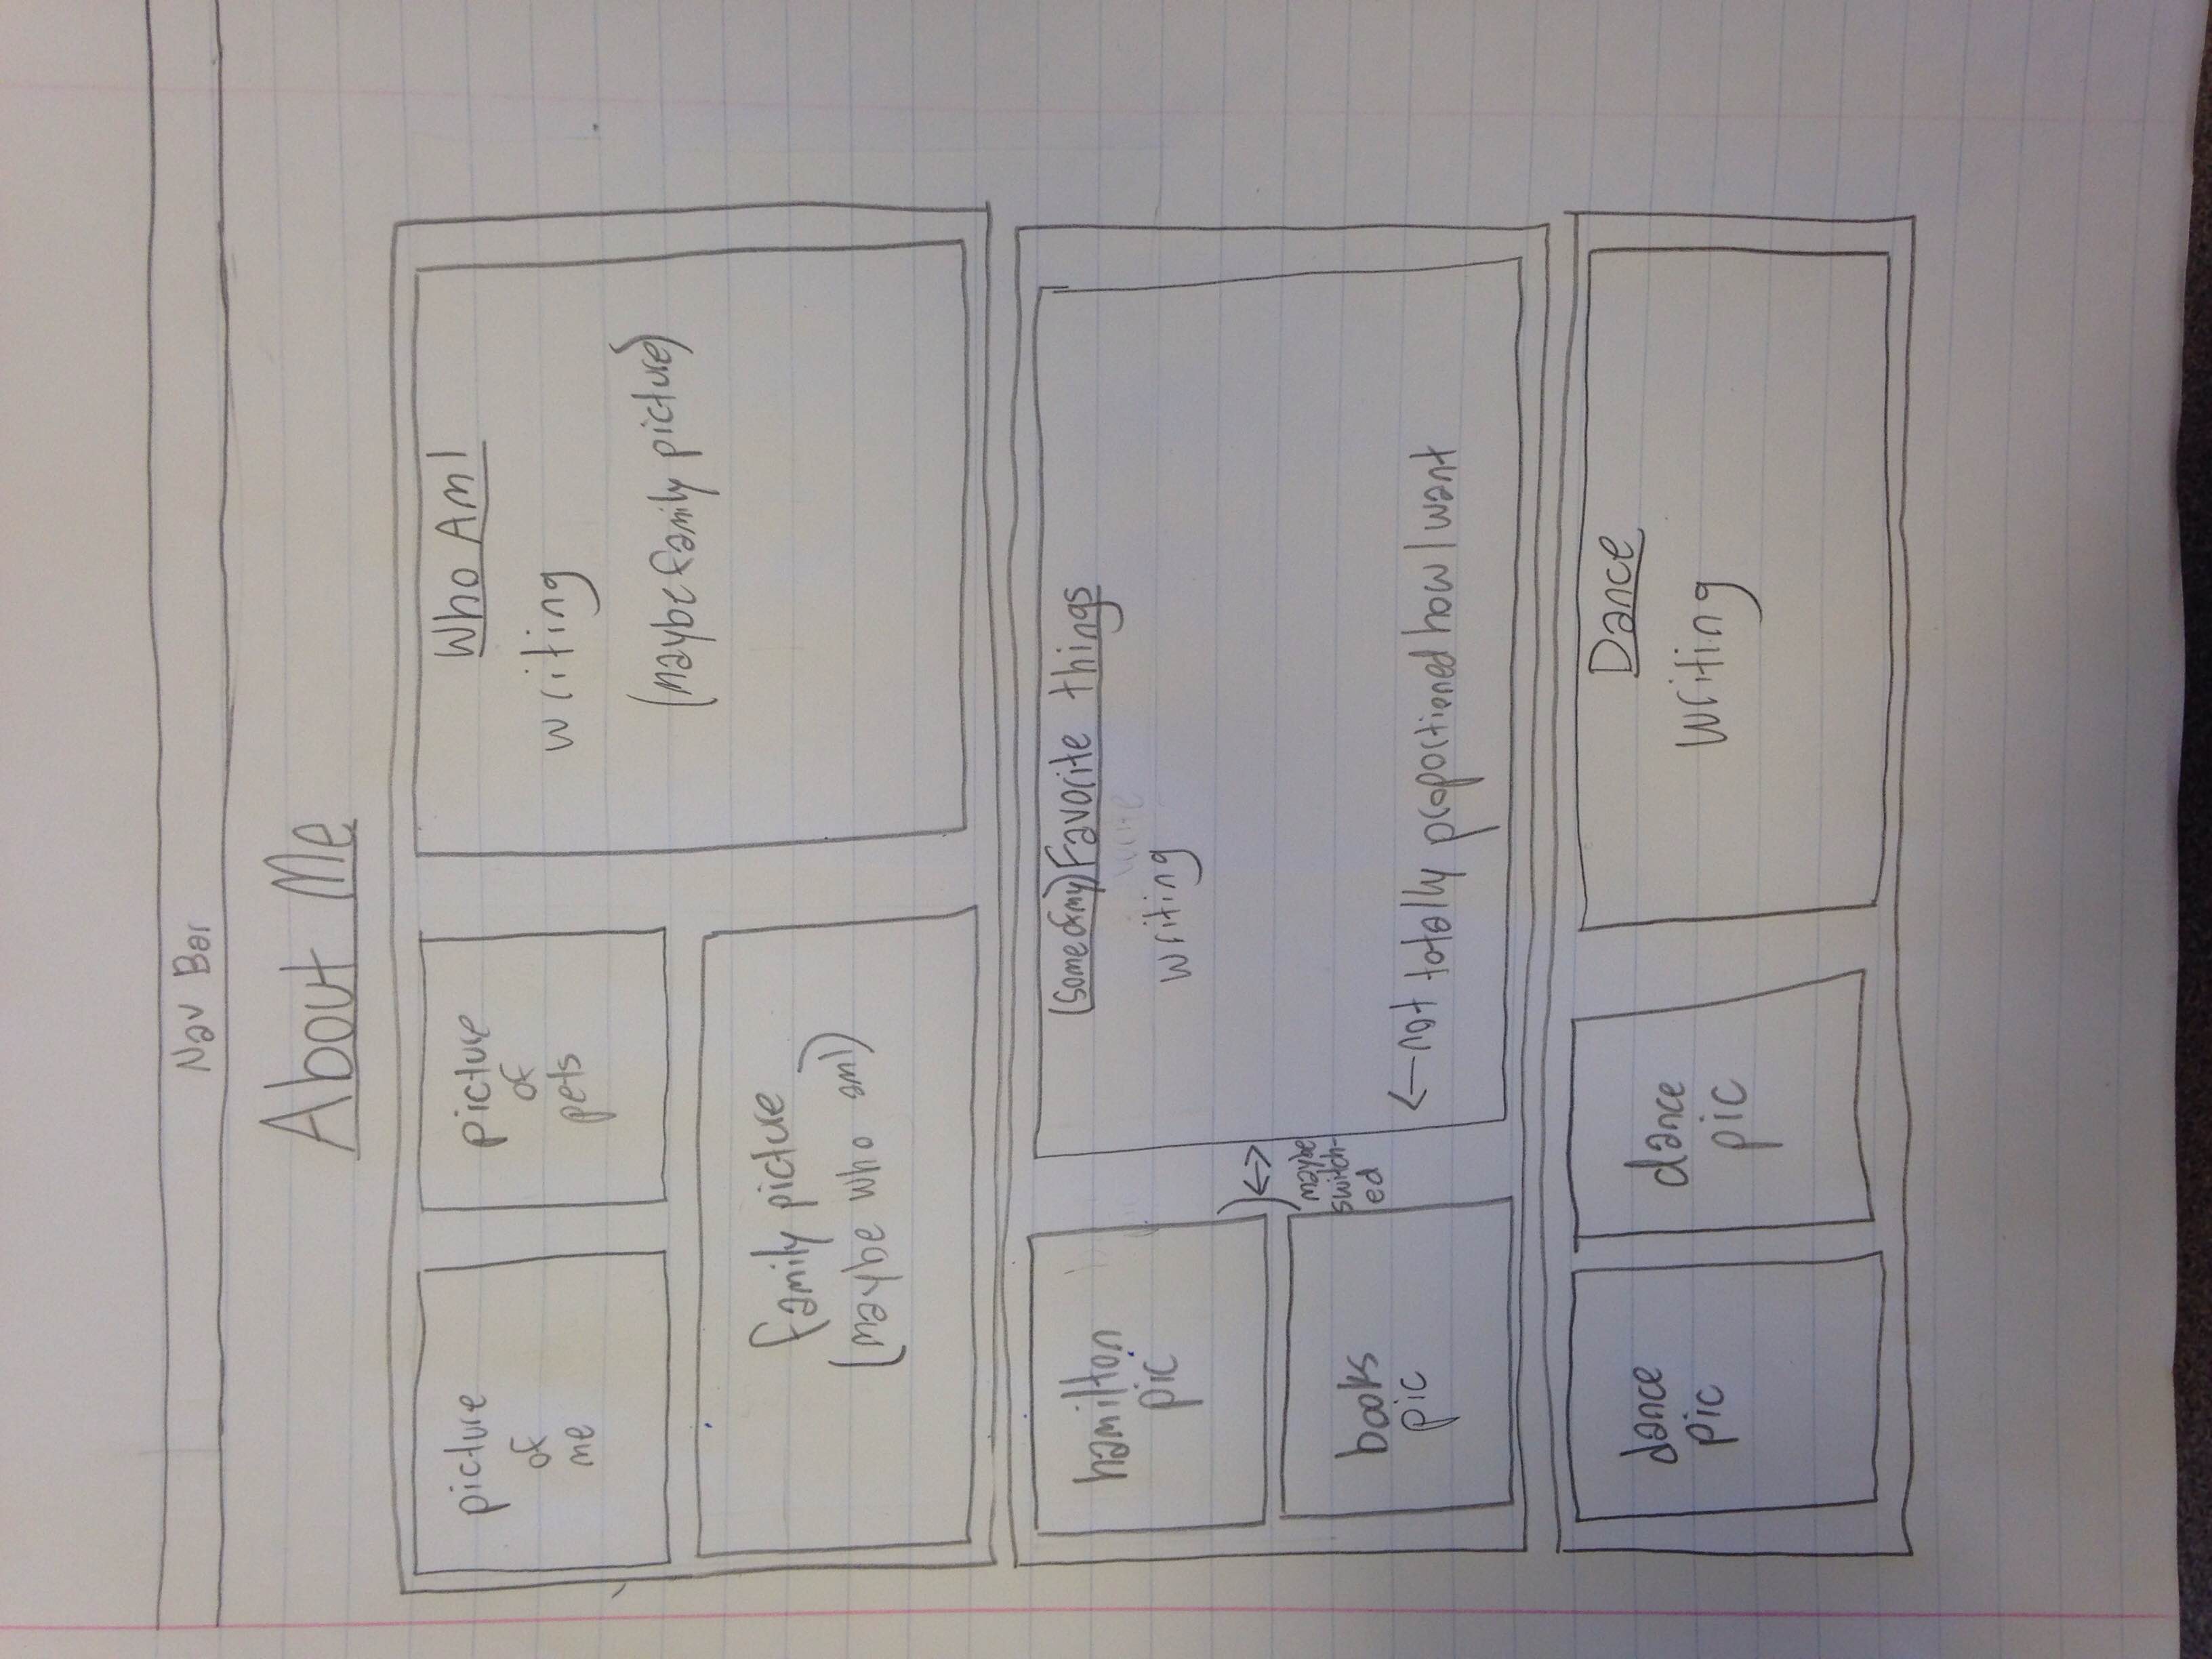 Nav Bar
About Me
picture
of
me
picture
of
pets
Who Am I
writing
(maybe family picture)
family picture
(maybe who am I)
hamilton
pic
(some of my) Favorite things
writing
maybe
switch-
ed
books
pic
←not totally proportioned how I want
dance
pic
dance
pic
Dance
Writing